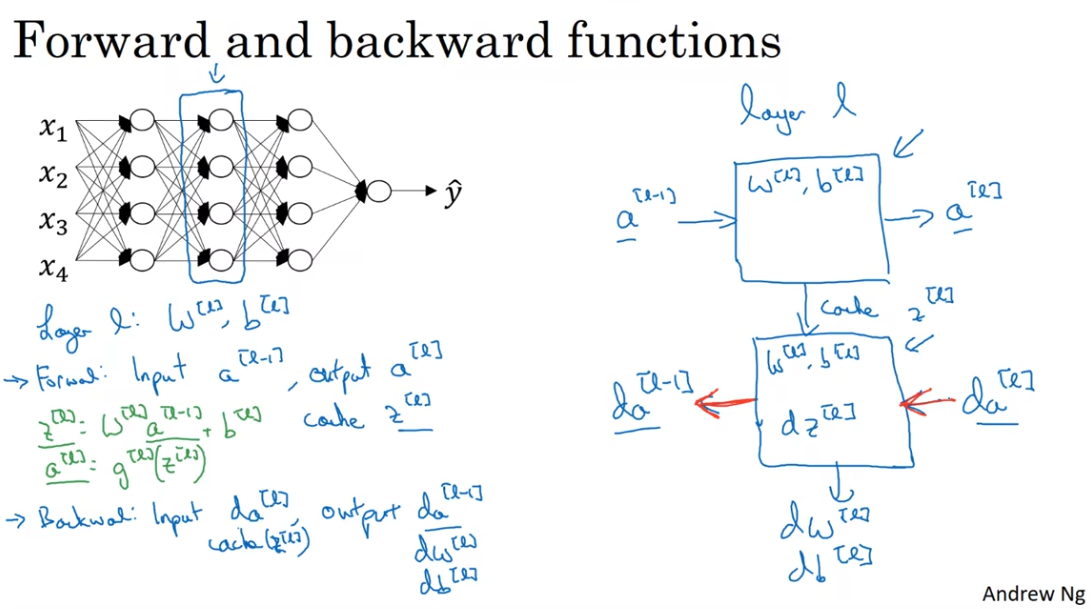 Forward and backward functions
x₁
x₂
x₃
x₄
ŷ
Layer l: W^[l], b^[l]
→ Forward: Input a^[l-1], output a^[l]
cache z^[l]
z^[l] = W^[l] a^[l-1] + b^[l]
a^[l] = g^[l](z^[l])
→ Backward: Input da^[l], output da^[l-1]
cache(z^[l])
dW^[l]
db^[l]
layer l
a^[l-1]
W^[l], b^[l]
a^[l]
cache z^[l]
da^[l-1]
W^[l], b^[l]
dz^[l]
da^[l]
dW^[l]
db^[l]
Andrew Ng